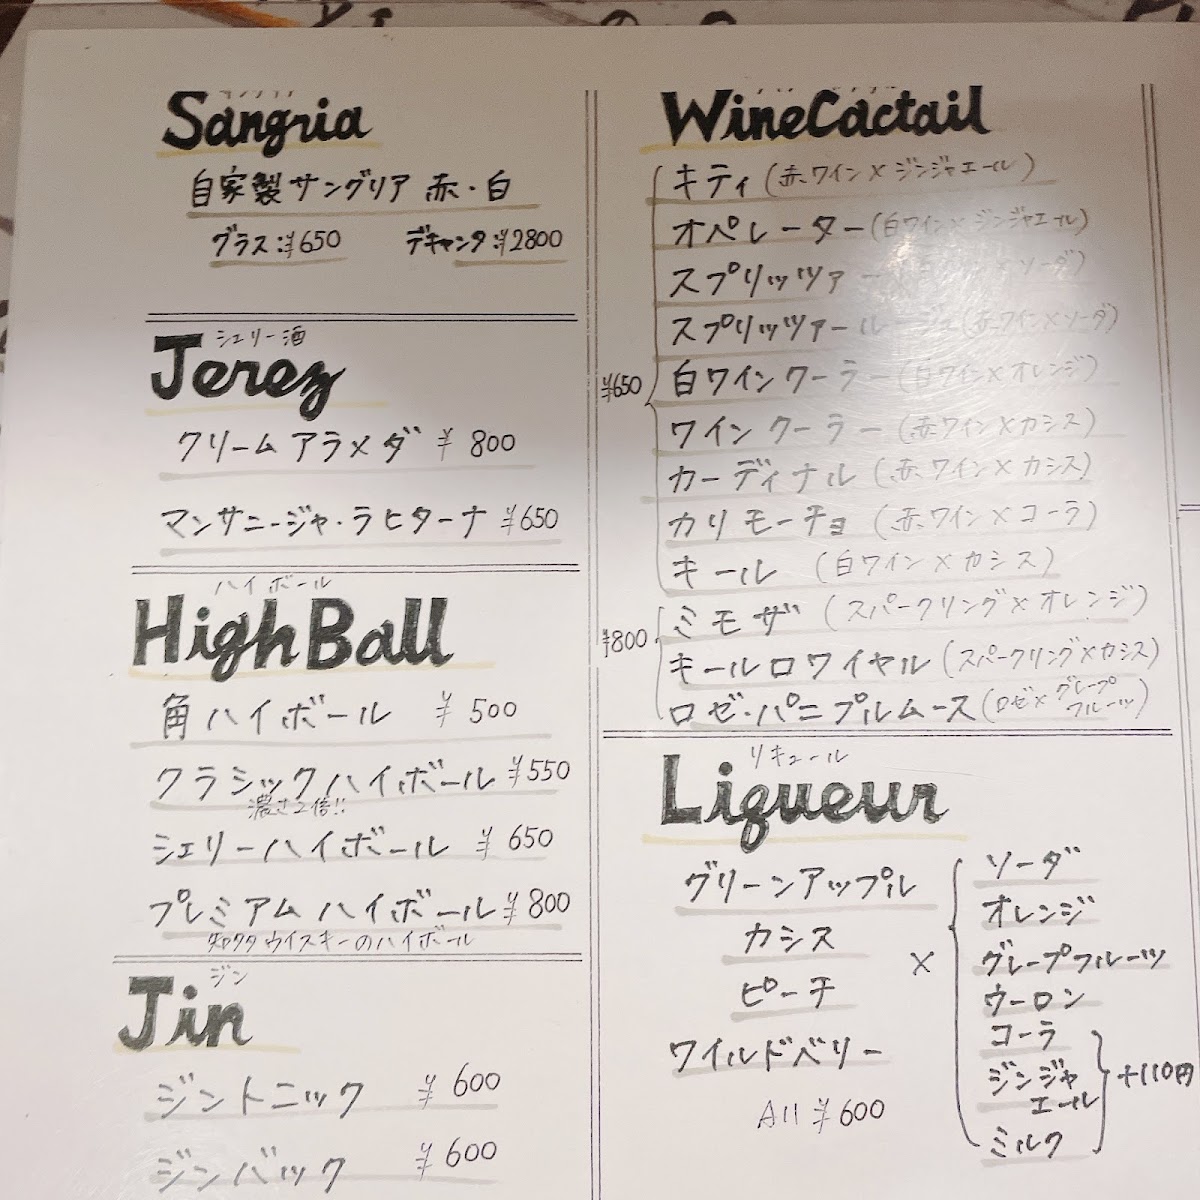 Sangria
自家製サングリア 赤・白
グラス:¥650 デキャンタ:¥2800
シェリー酒
Jerez
クリームアラメダ ¥800
マンサニージャ・ラヒターナ ¥650
ハイボール
High Ball
角ハイボール ¥500
クラシックハイボール ¥550
濃さ2倍!!
シェリーハイボール ¥650
プレミアムハイボール ¥800
知多 ウイスキーのハイボール
ジン
Jin
ジントニック ¥600
ジンバック ¥600
WineCactail
キティ (赤ワイン×ジンジャエール)
オペレーター (白ワイン×ジンジャエール)
スプリッツァー ソーダ)
スプリッツァールージュ (赤ワイン×ソーダ)
¥650
白ワインクーラー (白ワイン×オレンジ)
ワインクーラー (赤ワイン×カシス)
カーディナル (赤ワイン×カシス)
カリモーチョ (赤ワイン×コーラ)
キール (白ワイン×カシス)
ミモザ (スパークリング×オレンジ)
¥800
キールロワイヤル (スパークリング×カシス)
ロゼ・パニプルムース (ロゼ×グレープフルーツ)
リキュール
Liqueur
グリーンアップル
カシス
ピーチ
ワイルドベリー
All ¥600
×
ソーダ
オレンジ
グレープフルーツ
ウーロン
コーラ
ジンジャ
エール
ミルク
+110円